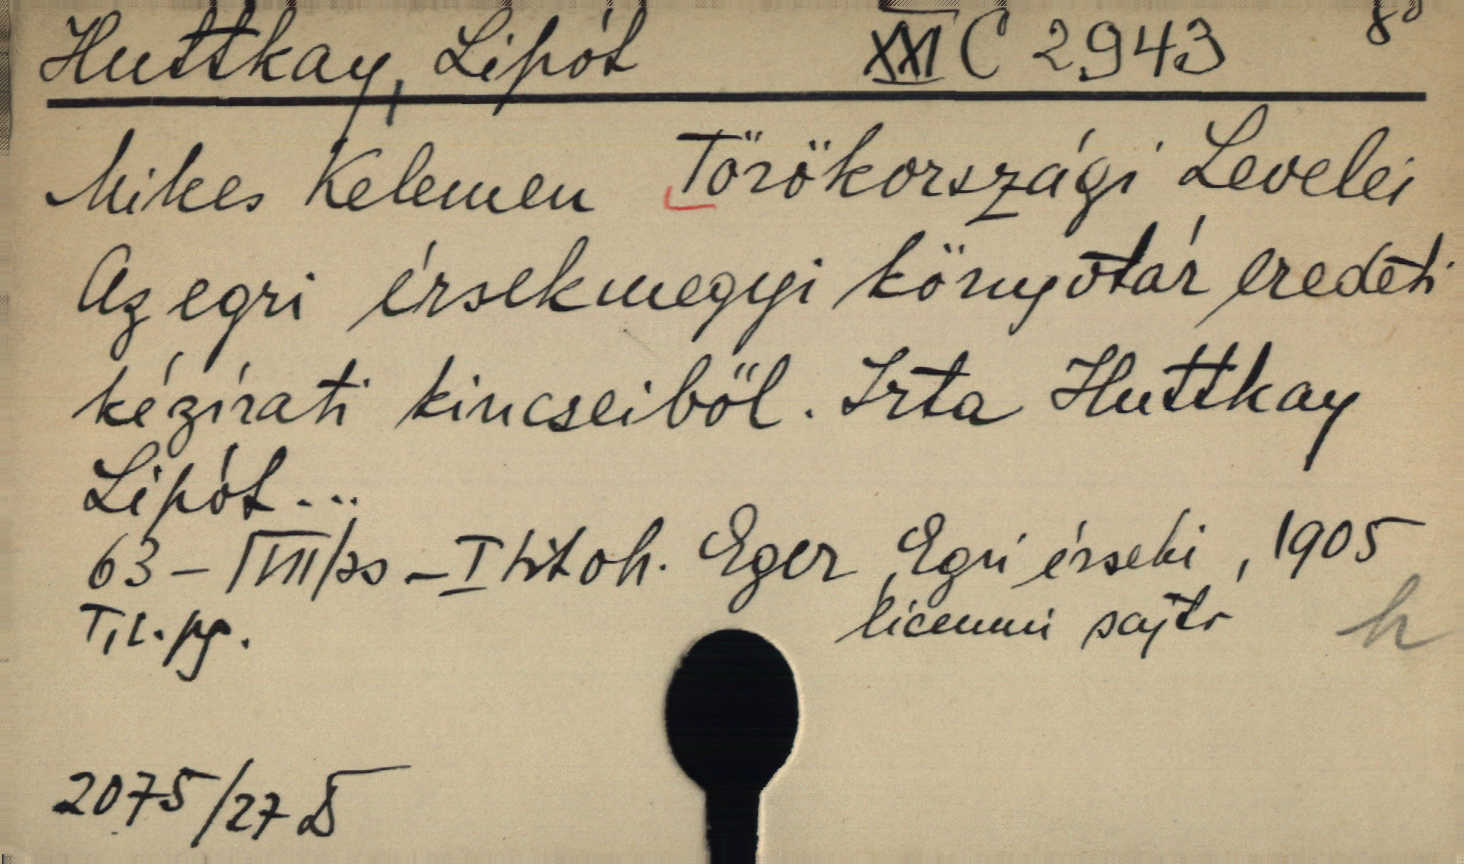 Huttkay, Lipót XXI C 2943 8°
Mikes Kelemen Törökországi Levelei
Az egri érsekmegyei könyvtár eredeti
kézirati kincseiből. Irta Huttkay
Lipót...
63 - I Eger, Egri érseki, 1905
liceumi sajtó h
T, l. pg.
2075/27